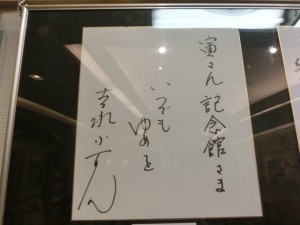 寅さん記念館さま
いつでも
ゆめを
吉永小百合